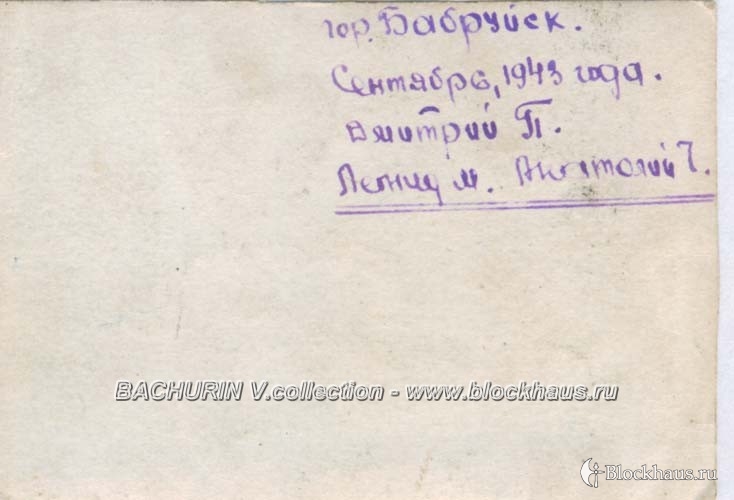 гор. Бабруйск.
Сентябрь, 1943 года.
Дмитрий П.
Леонид М. Анатолий Г.
BACHURIN V.collection - www.blockhaus.ru
Blockhaus.ru